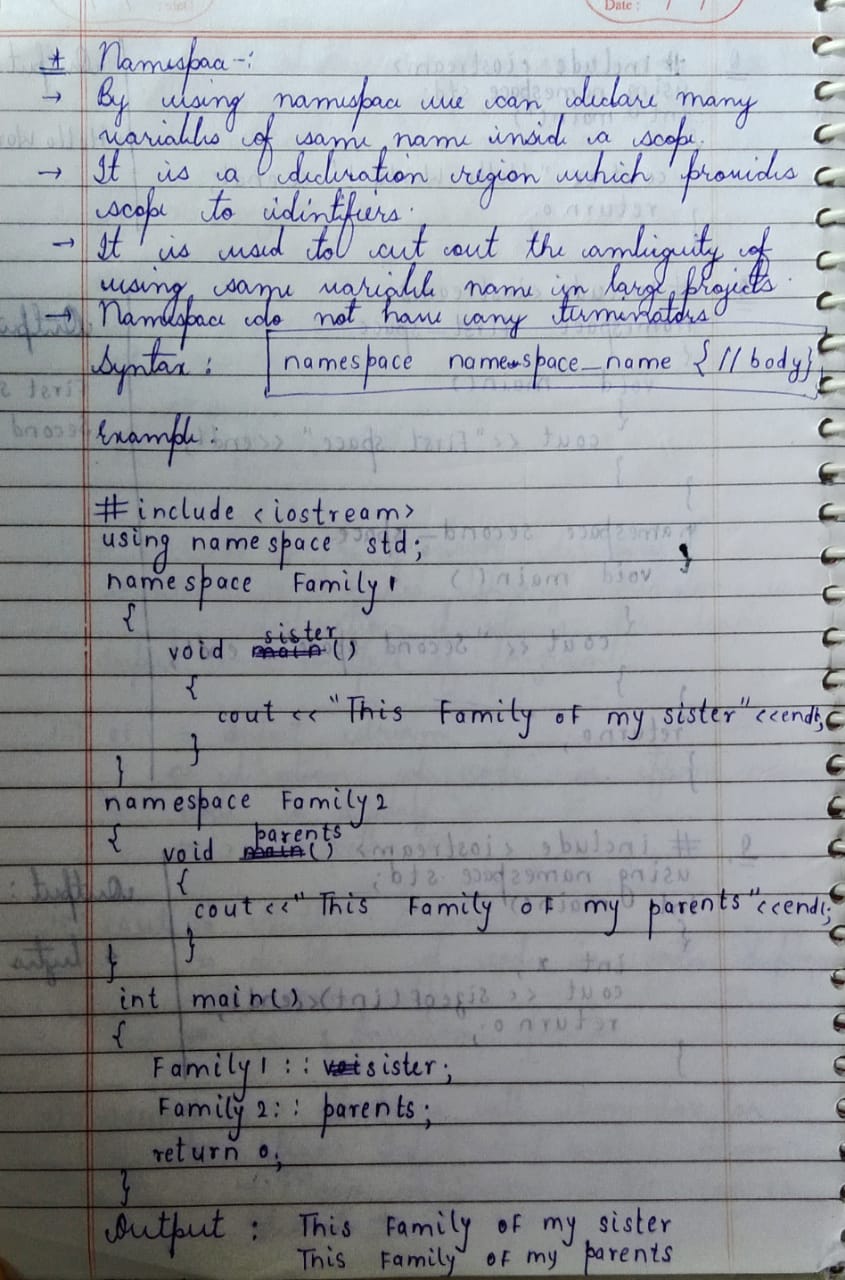 Date :
* Namespace -:
→ By using namespace we can declare many
variables of same name inside a scope.
→ It is a decleration region which provides
scope to identifiers.
→ It is used to cut out the ambiguity of
using same variable name in large projects.
→ Namespace do not have any terminators
Syntax : namespace name-space_name { // body}
Example :
# include <iostream>
using namespace std;
namespace Family1
{
void sister ()
{
cout << "This Family of my sister"<<endl;
}
}
namespace Family2
{
void parents ()
{
cout <<" This Family of my parents"<<endl;
}
}
int main()
{
Family1 : : sister;
Family 2: : parents;
return 0;
}
Output : This Family of my sister
This Family of my parents